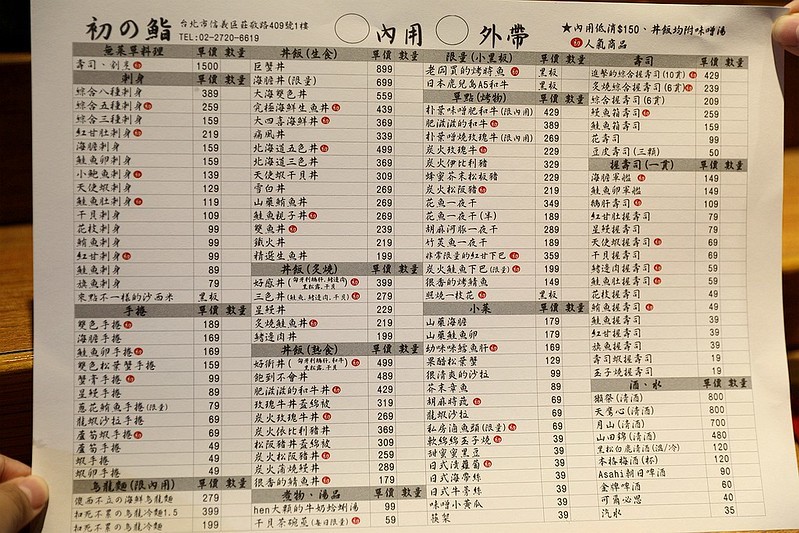 初の鮨
台北市信義區莊敬路409號1樓
TEL:02-2720-6619
內用
外帶
★內用低消$150、丼飯均附味噌湯
人氣商品
無菜單料理 單價 數量
壽司、割烹 1500
刺身 單價 數量
綜合八種刺身 389
綜合五種刺身 259
綜合三種刺身 159
紅甘肚刺身 219
海膽刺身 159
鮭魚卵刺身 159
小鮑魚刺身 139
天使蝦刺身 129
鮭魚肚刺身 119
干貝刺身 109
花枝刺身 99
鮪魚刺身 99
紅甘刺身 99
鮭魚刺身 89
旗魚刺身 79
來點不一樣的沙西米 黑板
手捲 單價 數量
雙色手捲 189
海膽手捲 169
鮭魚卵手捲 169
雙色松葉蟹手捲 159
蟹膏手捲 99
星鰻手捲 89
蔥花鮪魚手捲(限量) 79
龍蝦沙拉手捲 69
蘆筍蝦手捲 69
蘆筍手捲 49
蝦手捲 49
蝦卵手捲 49
烏龍麵(限內用) 單價 數量
279
399
199
丼飯(生食) 單價 數量
巨蟹丼 899
海膽丼(限量) 699
大海雙丼 559
究極海鮮生魚丼 439
大四喜海鮮丼 369
痛風丼 339
北海道五色丼 469
北海道三色丼 369
天使蝦干貝丼 309
雪白丼 269
山藥鮪魚丼 269
鮭魚親子丼 269
雙魚丼 239
鐵火丼 219
精選生魚丼 199
丼飯(炙燒) 單價 數量
好感丼 399
三色丼 279
星鰻丼 229
炙燒鮭魚丼 219
鰭邊肉丼 199
丼飯(熟食) 單價 數量
好術丼 499
飽到不會丼 489
肥滋滋的和牛丼 429
玫瑰牛丼蓋綿被 319
炭火玫瑰牛丼 269
炭火依比利豬丼 369
松阪豬丼蓋綿被 309
炭火松阪豬丼 259
炭火蒲燒鰻丼 289
很香的鯖魚丼 179
煮物、湯品 單價 數量
hen大顆的牛奶蛤蜊湯 99
干貝茶碗蒸(每日限量) 59
限量(小黑板) 單價 數量
老闆買的烤時魚 黑板
日本鹿兒島A5和牛 黑板
單點(烤物) 單價 數量
朴葉味噌肥和牛(限內用) 429
肥滋滋的和牛 389
朴葉噌燒玫瑰牛(限內用) 269
炭火玫瑰牛 229
炭火伊比利豬 329
蜂蜜芥末松板豬 229
炭火松阪豬 219
花魚一夜干 349
花魚一夜干(半) 189
胡麻河豚一夜干 289
竹筴魚一夜干 189
非常限量的紅甘下巴 359
炭火鮭魚下巴(限量) 199
很香的烤鯖魚 149
照燒一枝花 黑板
小菜 單價 數量
山藥海膽 179
山藥鮭魚卵 179
幼咪咪鱈魚肝 169
果醋松葉蟹 129
很清爽的沙拉 99
芥末章魚 89
胡麻時蔬 69
龍蝦沙拉 69
私房滷魚頭(限量) 69
軟綿綿玉子燒 49
甜蜜蜜黑豆 39
日式漬蘿蔔 39
日式海帶絲 39
日式牛蒡絲 39
味噌小黃瓜 39
39
壽司 單價 數量
進擊的綜合握壽司(10貫) 429
炙燒綜合握壽司(6貫) 239
綜合握壽司(6貫) 209
鰻魚箱壽司 259
鮭魚箱壽司 159
花壽司 99
豆皮壽司(三顆) 50
握壽司(一貫) 單價 數量
海膽軍艦 149
鮭魚卵軍艦 149
鵝肝壽司 109
紅甘肚握壽司 79
星鰻握壽司 79
天使蝦握壽司 69
干貝握壽司 69
鰭邊肉握壽司 59
鮭魚肚握壽司 59
花枝握壽司 49
鮪魚握壽司 49
鮭魚握壽司 39
紅甘握壽司 39
旗魚握壽司 39
壽司蝦握壽司 19
玉子燒握壽司 19
酒、水 單價 數量
獺祭(清酒) 800
天鷹心(清酒) 800
月山(清酒) 700
山田錦(清酒) 480
黑松白鹿清酒(溫/冷) 120
本格梅酒(杯) 120
Asahi朝日啤酒 90
金牌啤酒 60
可爾必思 40
汽水 35